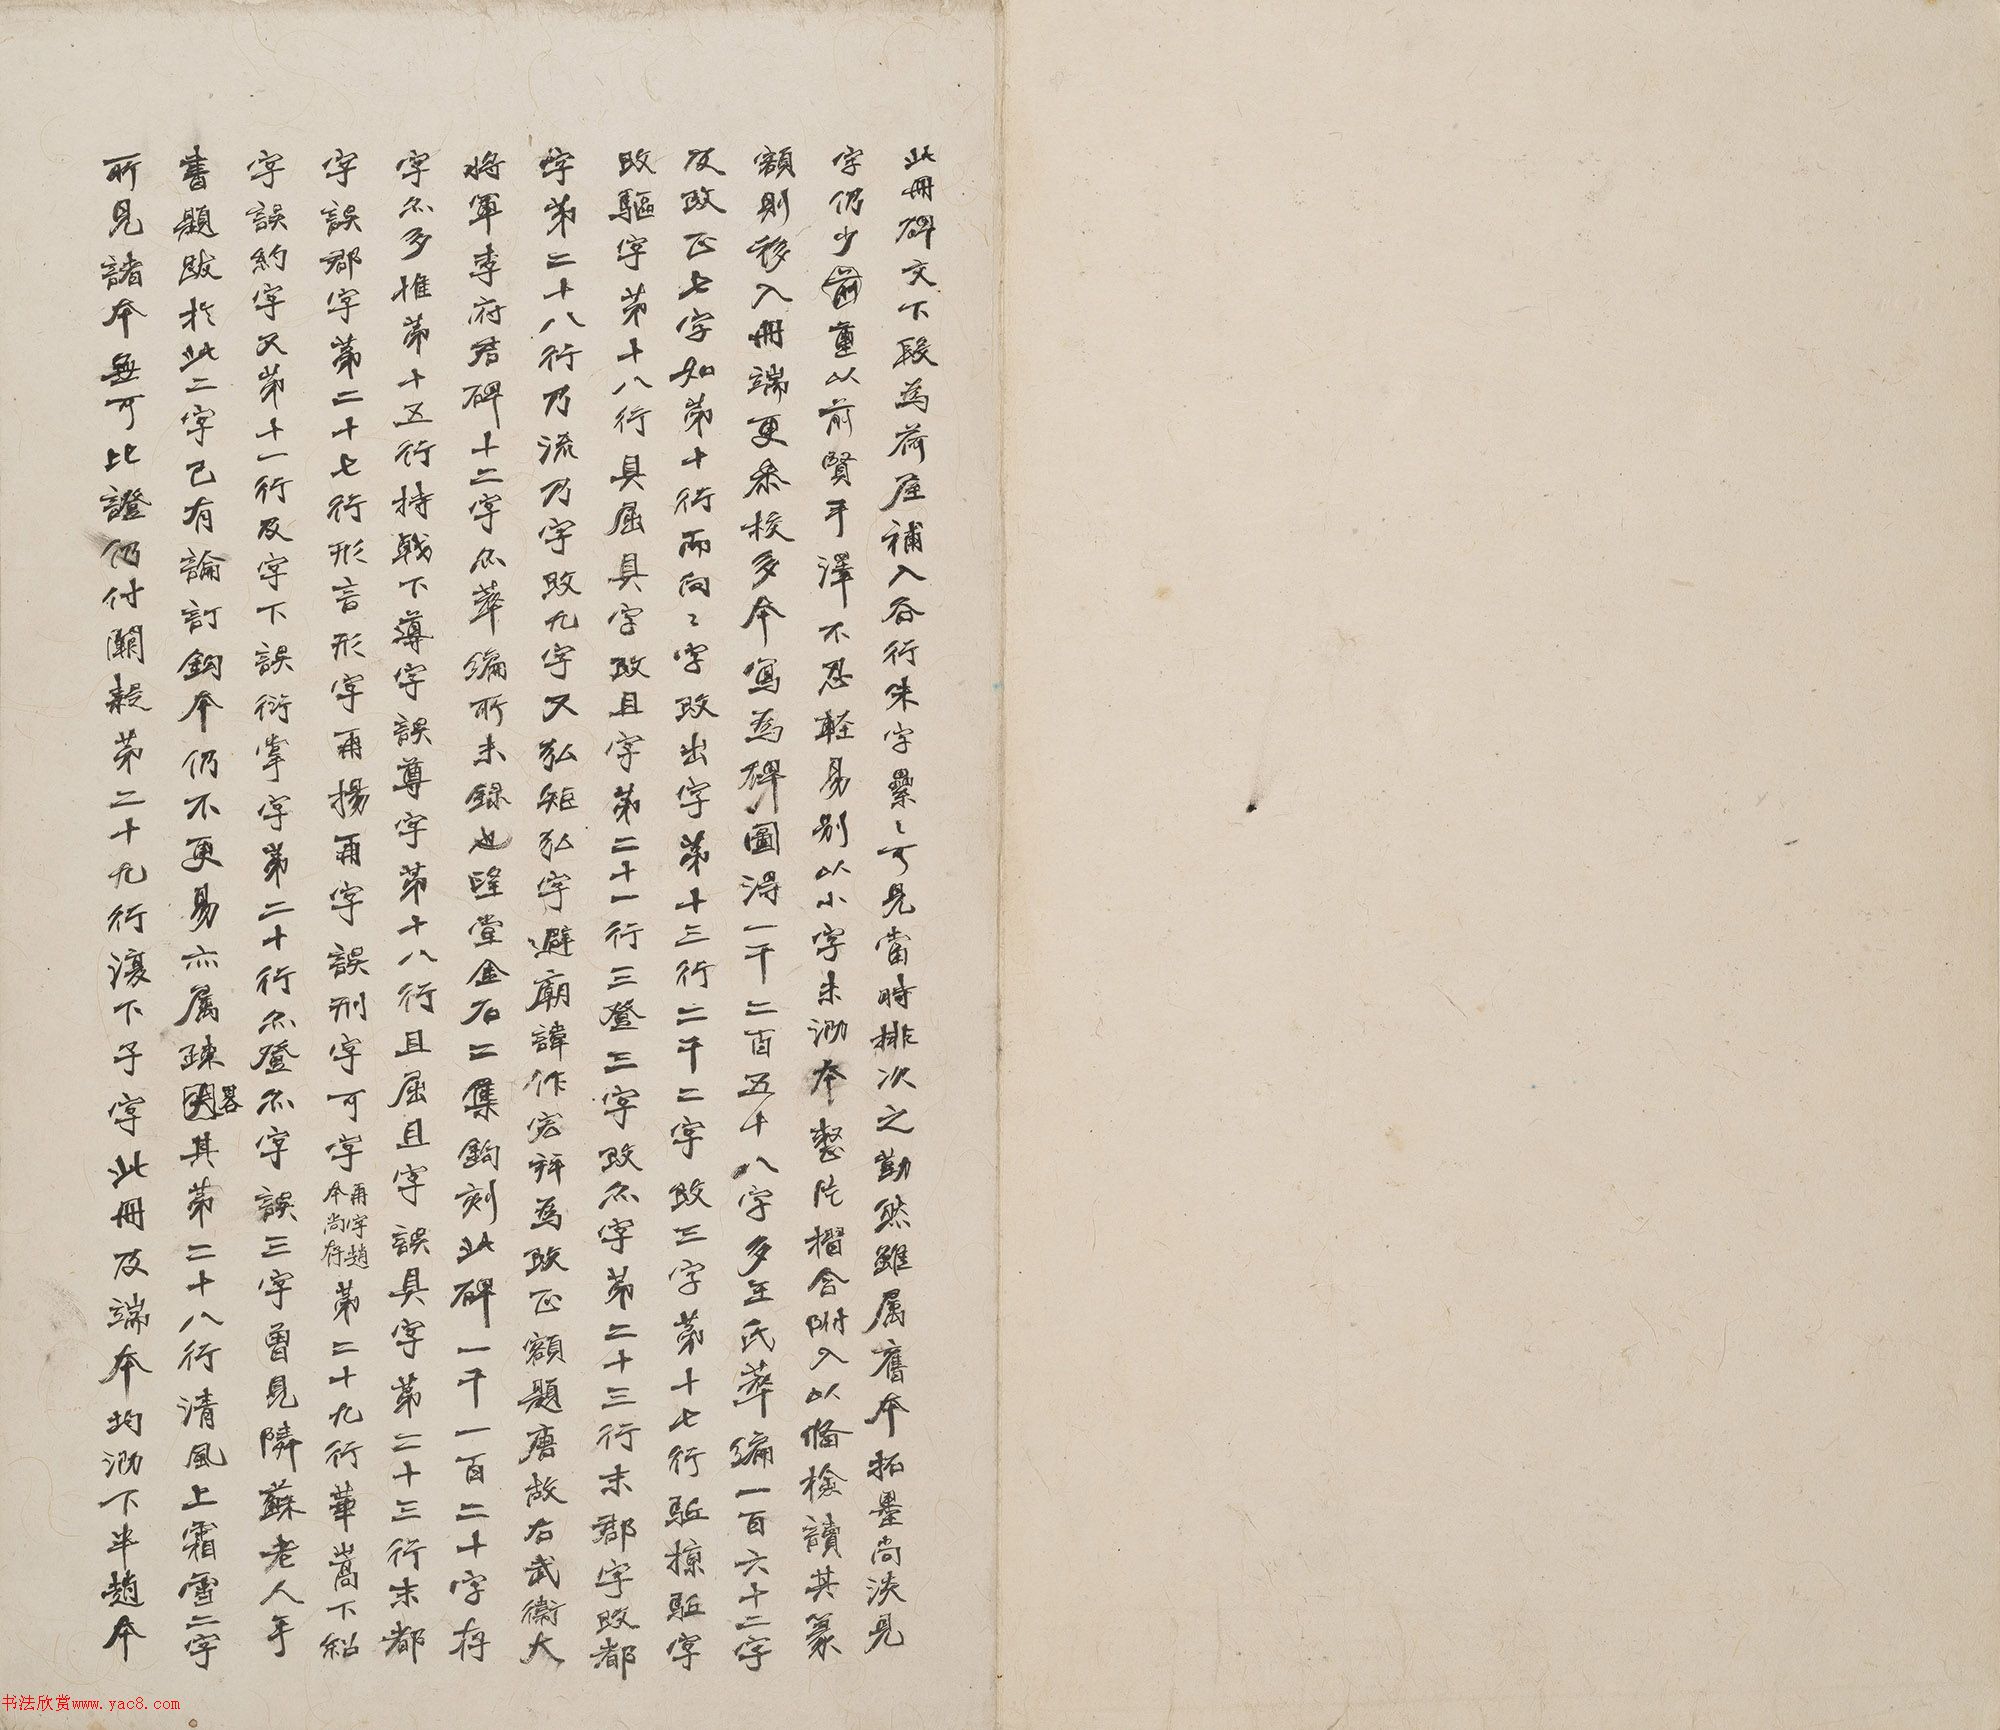 此冊碑文下段為荷屋補入谷行朱字纍〻可見當時排次之勤然雖属舊本拓墨尚淡見
字仍少前重以前賢手澤不忍輕易別以小字未泐本整片摺合附入以備檢讀其篆
額則移入冊端更叅校多本寫為碑圖得一千二百五十八字多王氏萃編一百六十二字
及改正七字如第十行而向〻字改出字第十三行二千二字改三字第十七行駈掠駈字
改驅字第十八行具屈具字改且字第二十一行三登三字改尒字第二十三行末郡字改都
字第二十八行乃流乃字改九字又弘矩弘字避廟諱作宏并為改正額題唐故右武衞大
將軍李府君碑十二字尒萃編所未録也陞堂金石二集鈎刻此碑一千一百二十字存
字尒多惟第十五行持戟下蓴字誤尊字第十八行且屈且字誤具字第二十三行末都
字誤郡字第二十七行形言形字再揚再字誤刑字可字再字趙本尚存第二十九行華嵩下紹
字誤約字又第十一行及字下誤衍掌字第二十行尒登尒字誤三字曾見隣蘇老人手
書題跋於此二字已有論訂鈎本仍不更易亦属疎畧其第二十八行清風上霜雪二字
所見諸本無可比證仍付闕疑第二十九行濅下子字此冊及端本均泐下半趙本
书法欣赏www.yac8.com